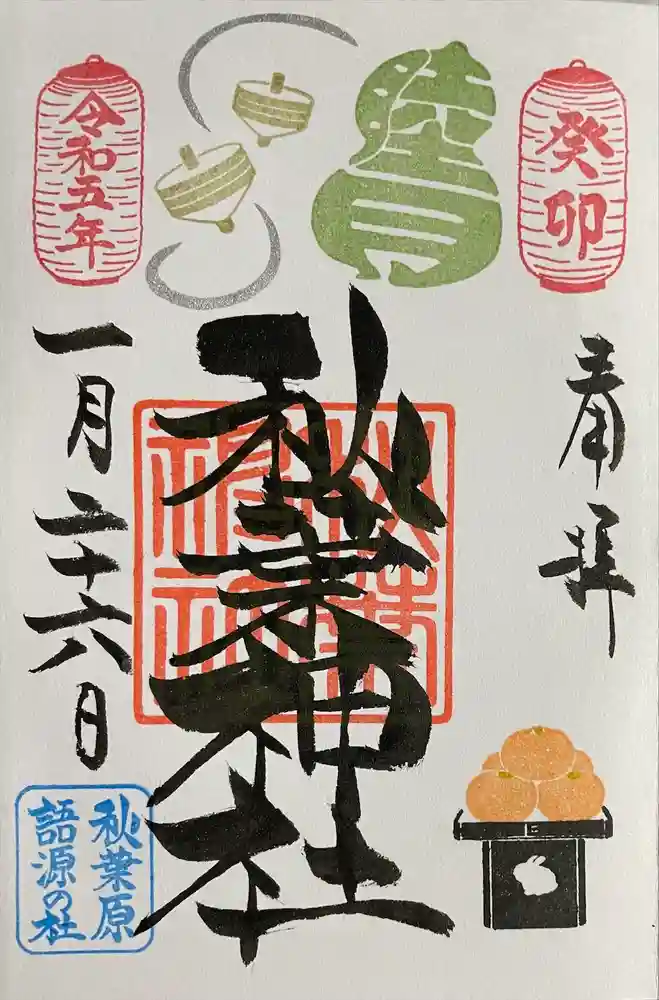 癸卯
睦月
令和五年
奉拝
秋葉神社
一月二十六日
秋葉原
語源の社